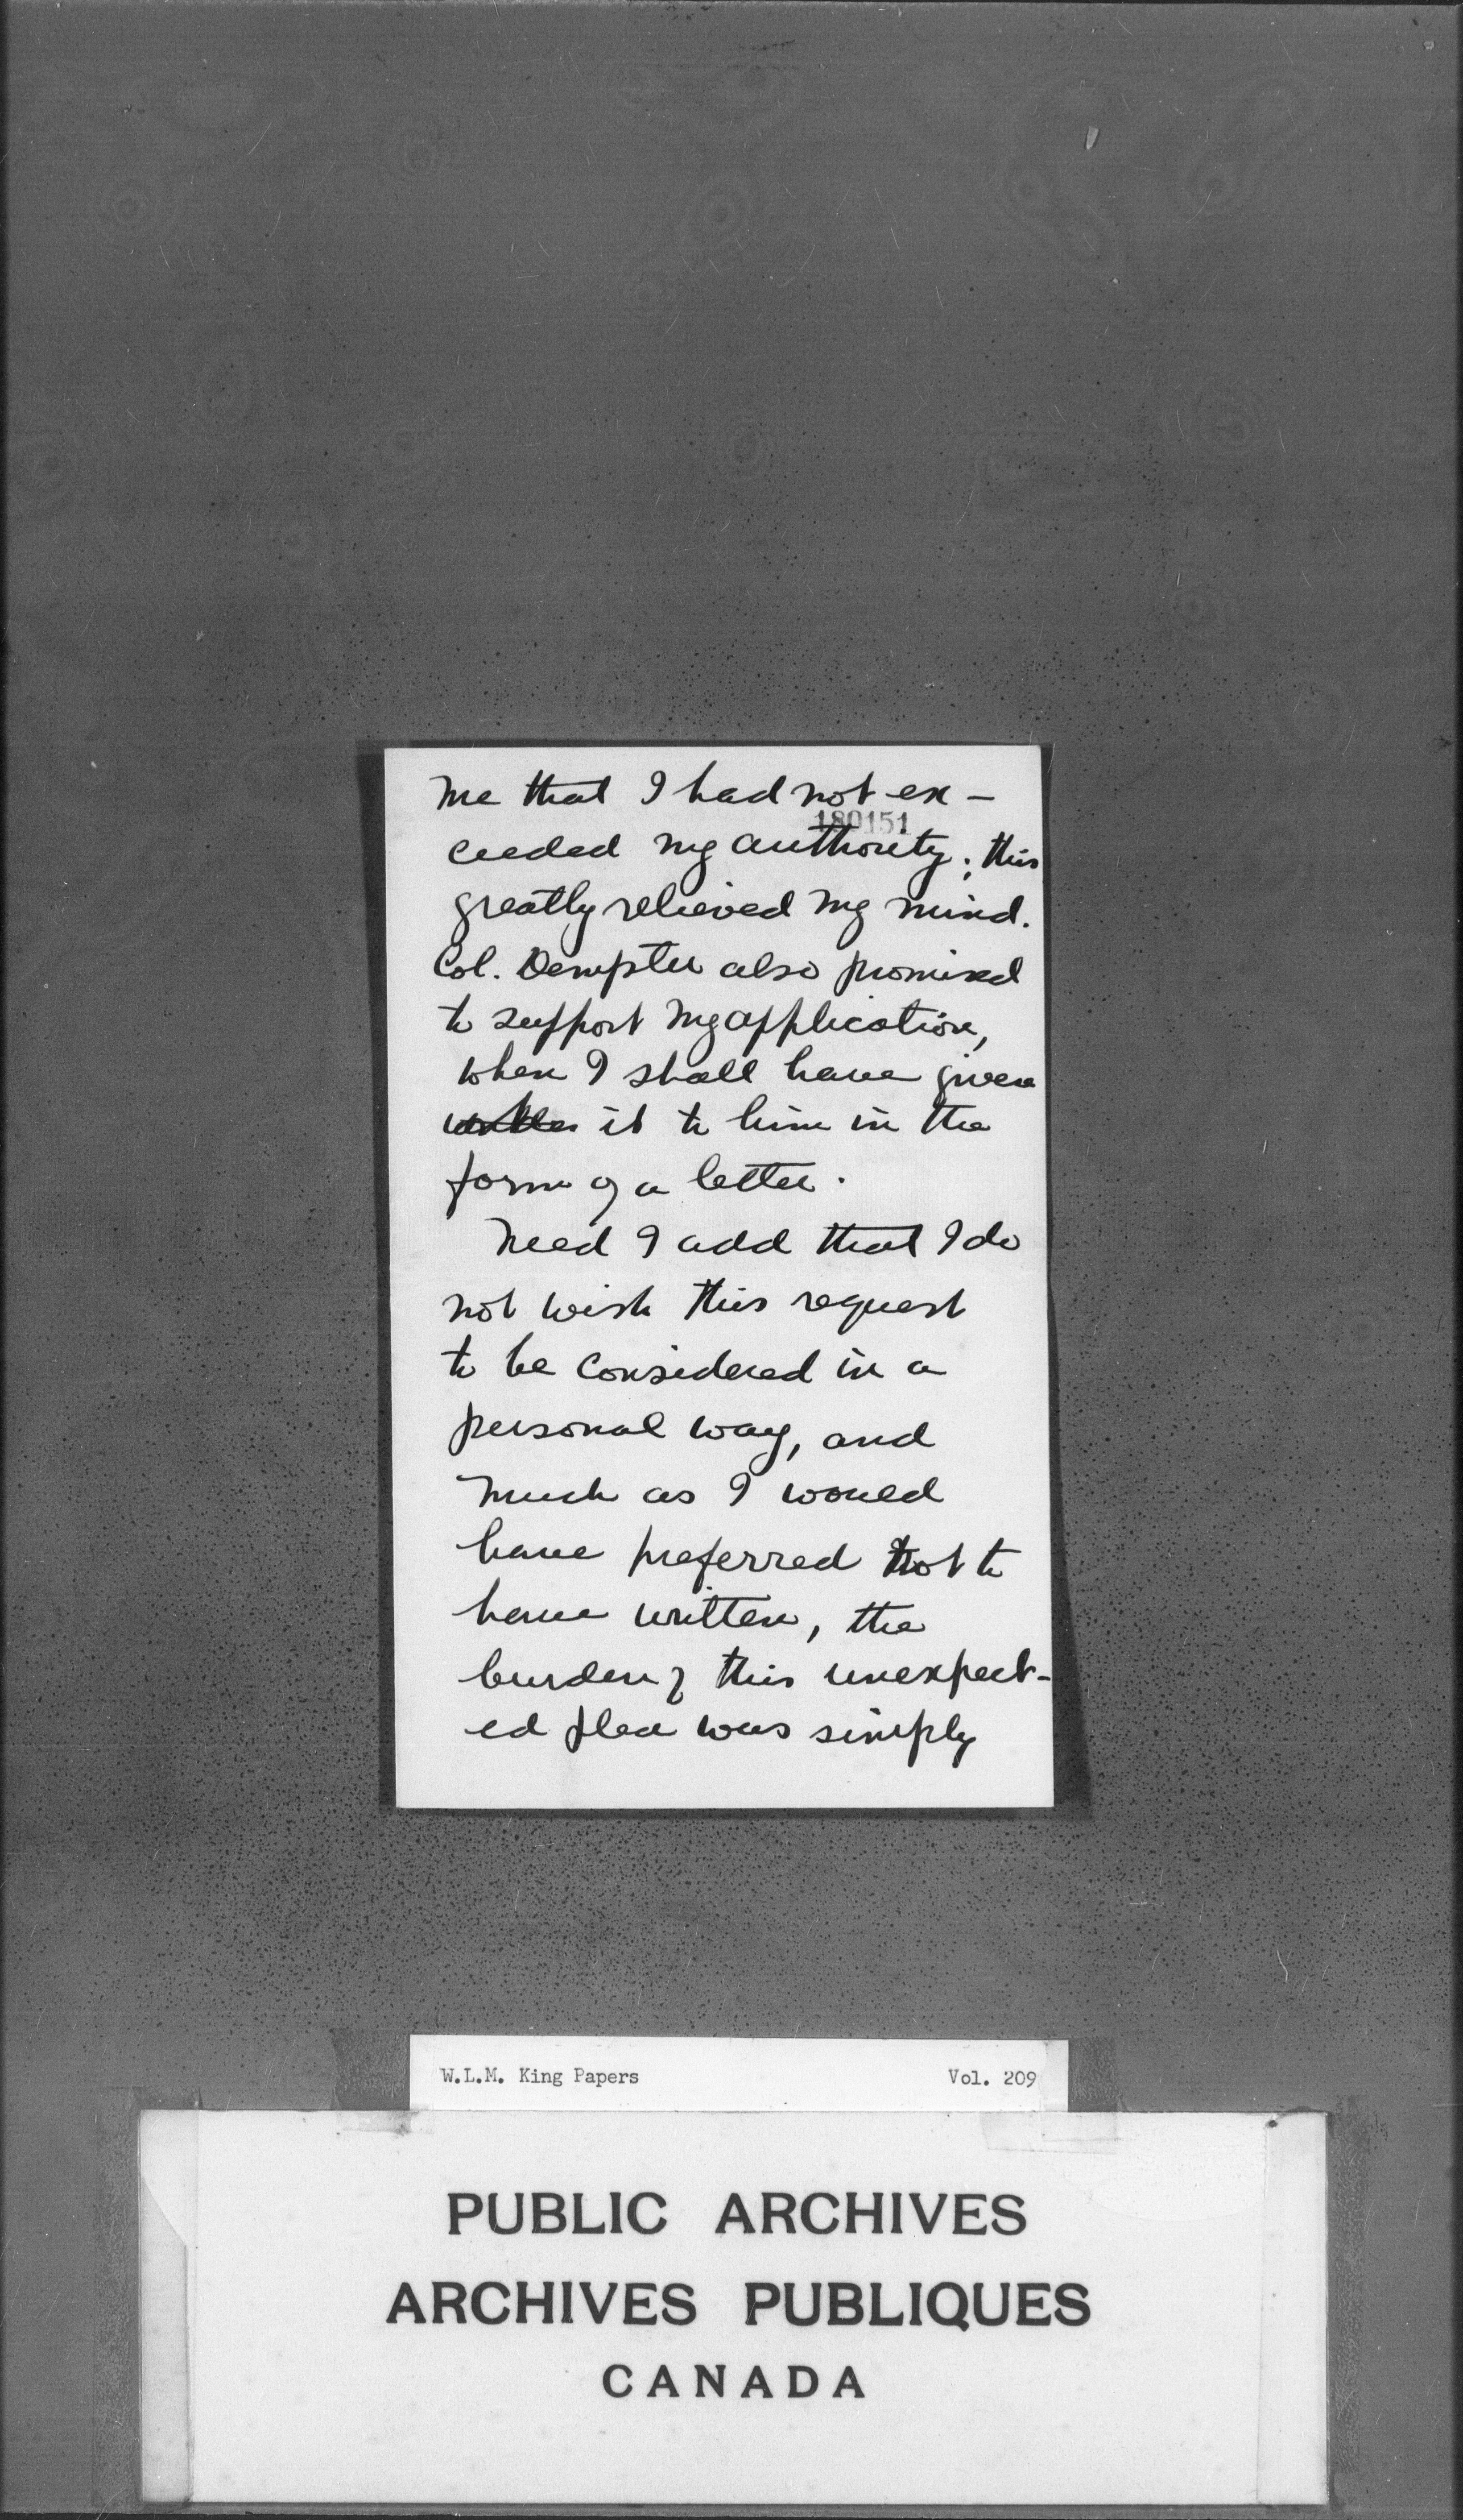 me that I had not ex-
180151
ceeded my authority; this
greatly relieved my mind.
Col. Dempster also promised
to support my application,
when I shall have given
it to him in the
form of a letter.
Need I add that I do
not wish this request
to be considered in a
personal way, and
much as I would
have preferred not to
have written, the
burden of this unexpect-
ed plea was simply
W.L.M. King Papers Vol. 209
PUBLIC ARCHIVES
ARCHIVES PUBLIQUES
CANADA